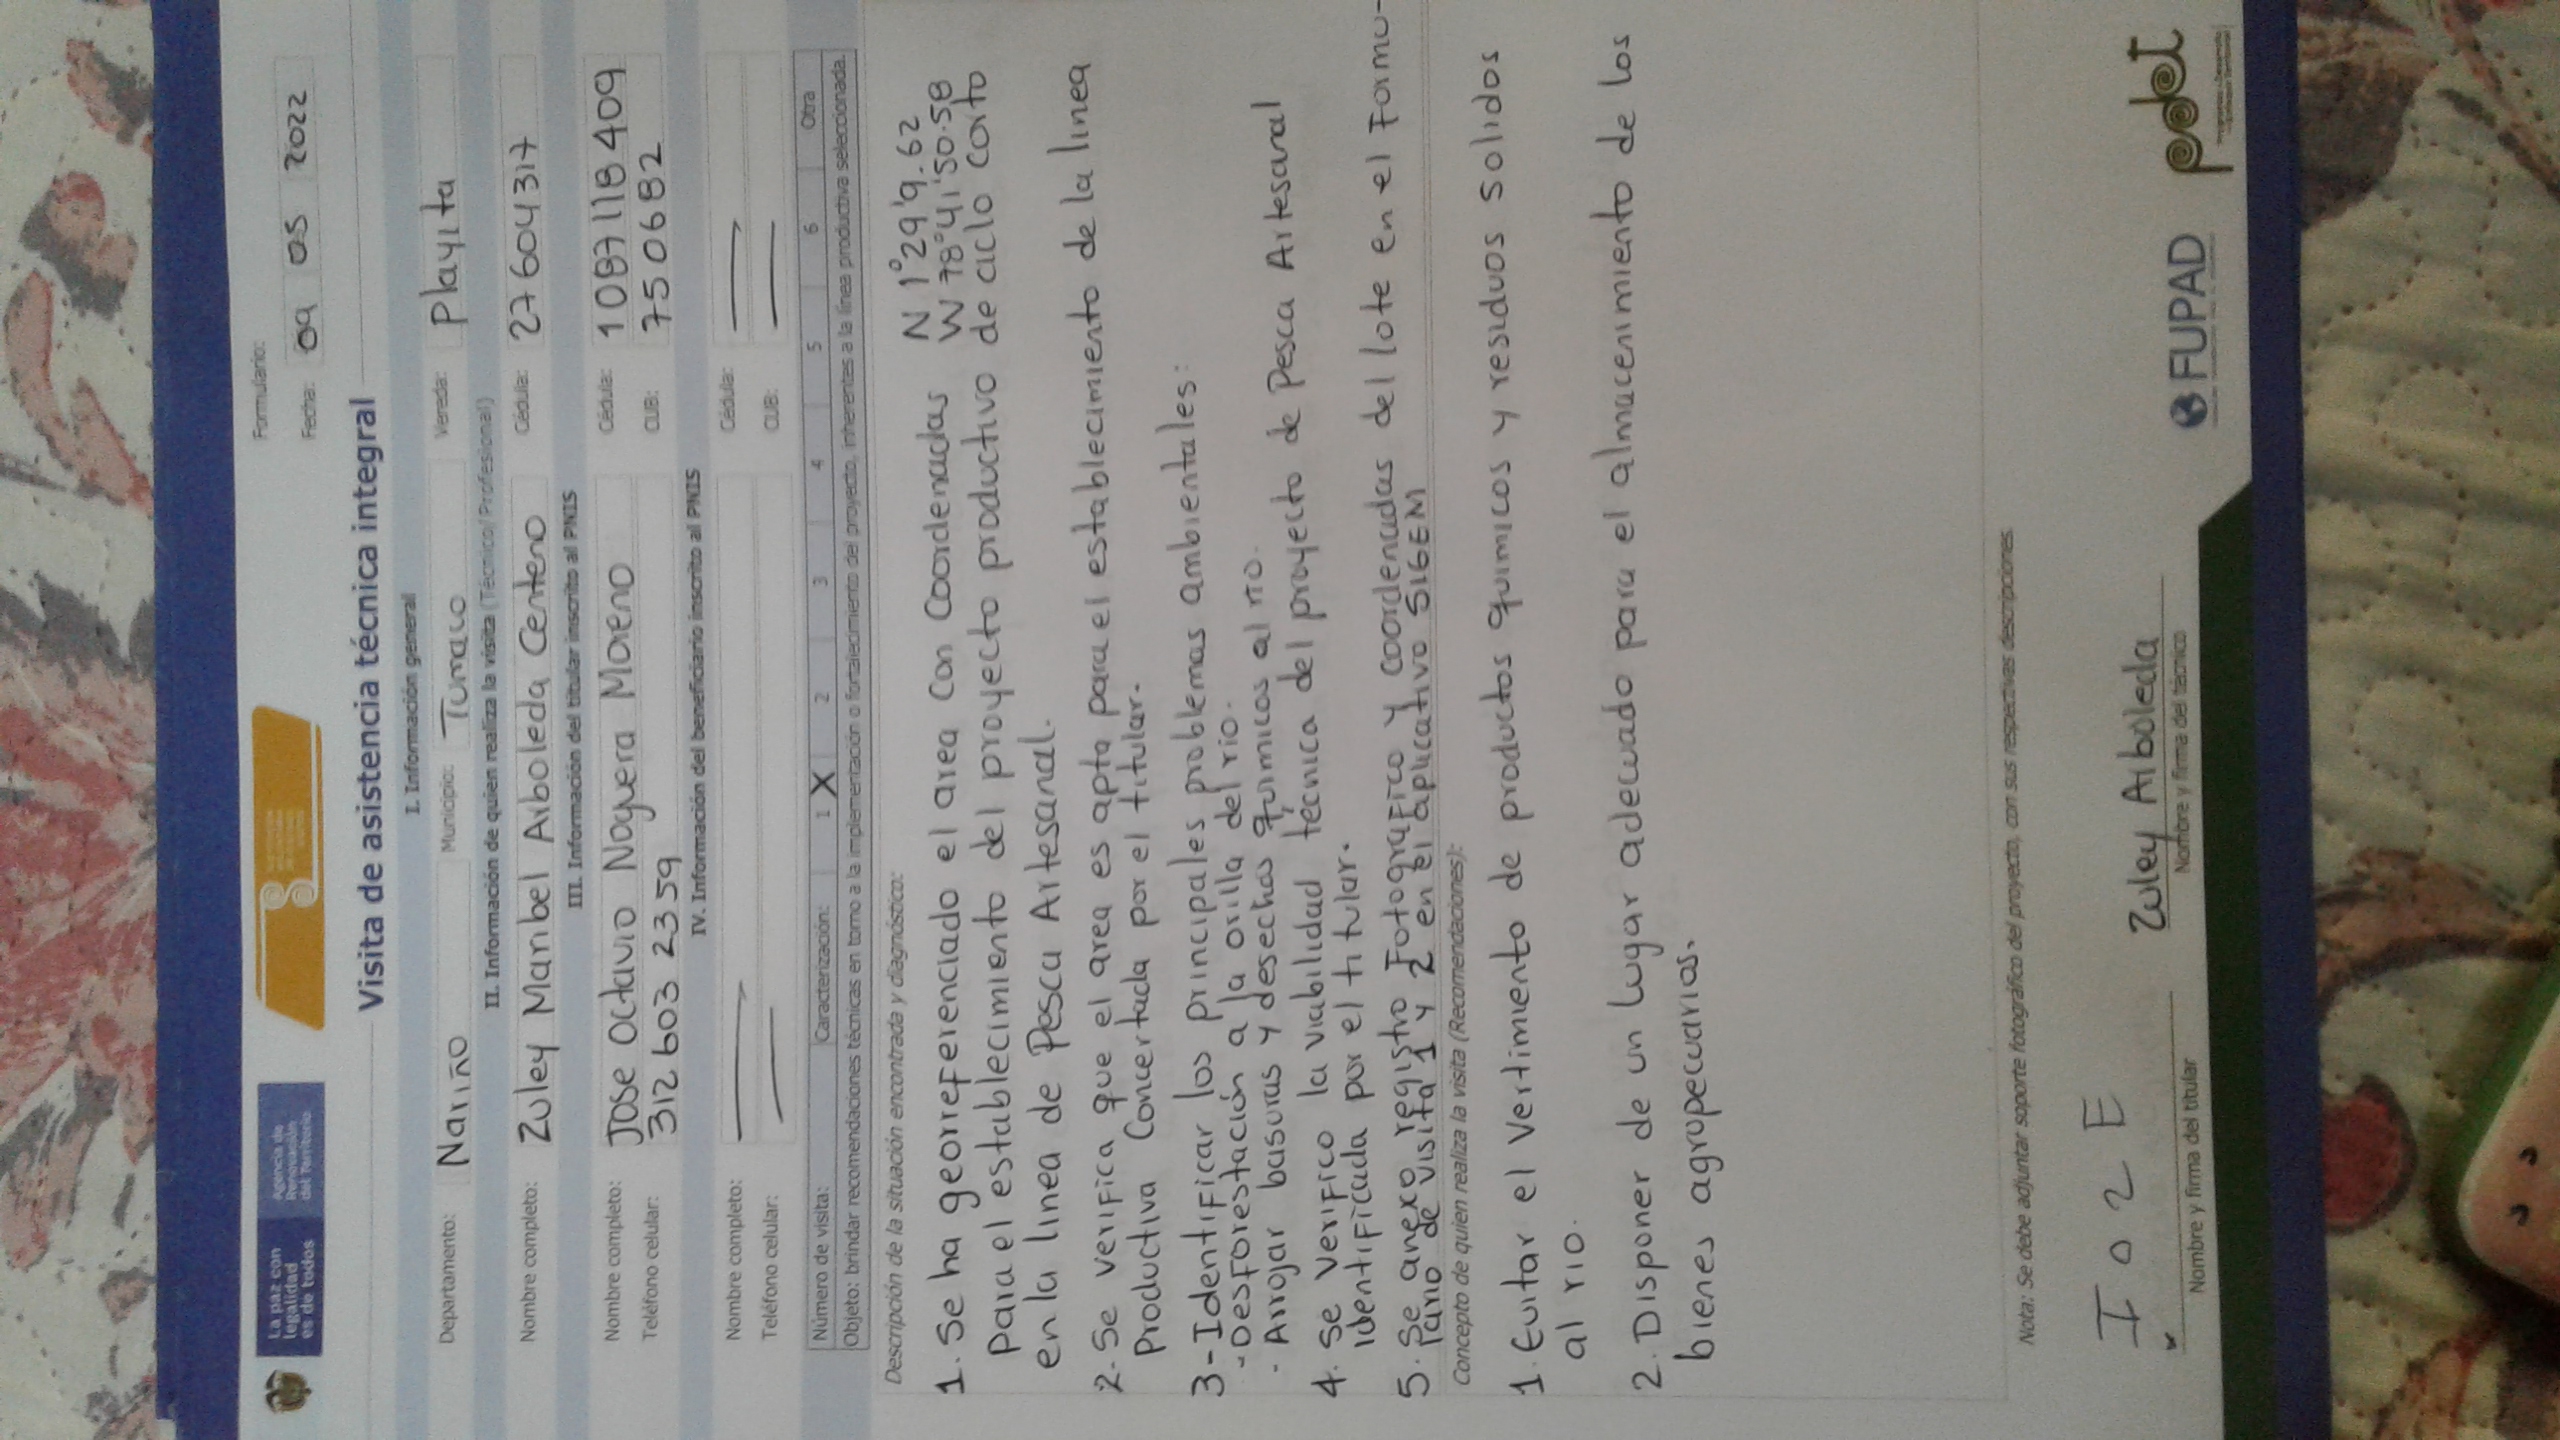 La paz con
legalidad
es de todos
Agencia de
Renovación
del Territorio
Formulario:
Fecha: 09 05 2022
Visita de asistencia técnica integral
I. Información general
Departamento: Nariño Municipio: Tumaco Vereda: Playita
II. Información de quien realiza la visita (Técnico/Profesional)
Nombre completo: Zuley Maribel Arboleda Centeno Cédula: 27604317
III. Información del titular inscrito al PNIS
Nombre completo: Jose Octavio Noguera Moreno Cédula: 1087118409
Teléfono celular: 312 603 2359 CUB: 750682
IV. Información del beneficiario inscrito al PNIS
Nombre completo: — Cédula: —
Teléfono celular: — CUB: —
Número de visita: Caracterización: 1 X 2 3 4 5 6 Otra
Objeto: brindar recomendaciones técnicas en torno a la implementación o fortalecimiento del proyecto, inherentes a la línea productiva seleccionada.
Descripción de la situación encontrada y diagnóstico:
1. Se ha georreferenciado el area con Coordenadas N 1°29'9.62 W 78°41'50.58
para el establecimiento del proyecto productivo de ciclo corto
en la linea de Pesca Artesanal.
2. Se verifica que el area es apta para el establecimiento de la linea
Productiva Concertada por el titular.
3- Identificar los principales problemas ambientales:
- Desforestación a la orilla del rio.
- Arrojar basuras y desechos quimicos al rio.
4. Se verifico la viabilidad técnica del proyecto de Pesca Artesanal
identificada por el titular.
5. Se anexo registro fotografico y coordenadas del lote en el Formu-
lario de visita 1 y 2 en el aplicativo SIGEM
Concepto de quien realiza la visita (Recomendaciones):
1. Evitar el vertimiento de productos quimicos y residuos solidos
al rio.
2. Disponer de un lugar adecuado para el almacenimiento de los
bienes agropecuarios.
Nota: Se debe adjuntar soporte fotográfico del proyecto, con sus respectivas descripciones.
I o 2 E
Nombre y firma del titular
Zuley Arboleda
Nombre y firma del técnico
FUPAD
pdet